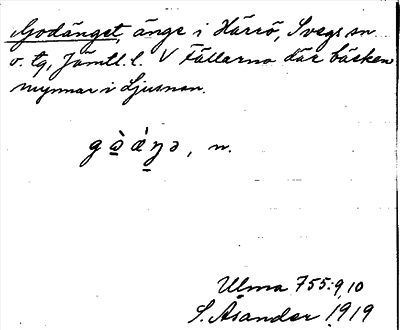 Godänget, änge i Härrö, Svegs sn
o. tg, Jämtl. l. V Fällarna där bäcken
mynnar i Ljusnan.
gà̱áŋ̱ə, n.
Ulma 755:9,10
S. Åsander 1919